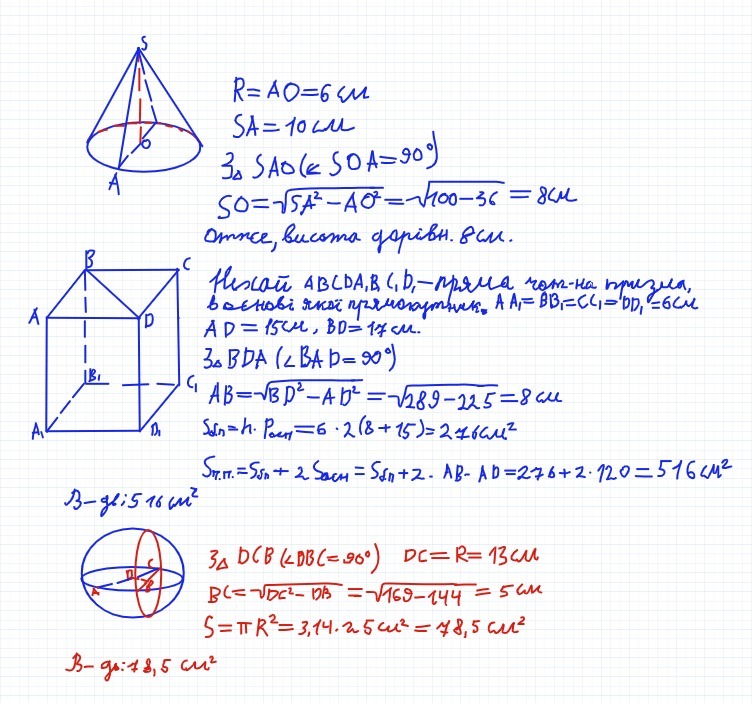 S
O
A
R = AO = 6 см
SA = 10 см
З△ SAO (∠ SOA = 90°)
SO = √SA² − AO² = √100 − 36 = 8 см
Отже, висота дорівн. 8 см.
B
C
A
D
B₁
C₁
A₁
D₁
Нехай ABCDA₁B₁C₁D₁ – пряма чот-на призма,
в основі якої прямокутник. AA₁ = BB₁ = CC₁ = DD₁ = 6 см
AD = 15 см, BD = 17 см.
З△ BDA (∠BAD = 90°)
AB = √BD² − AD² = √289 − 225 = 8 см
Sбп = h · Pосн = 6 · 2(8 + 15) = 276 см²
Sп.п. = Sбп + 2 Sосн = Sбп + 2 · AB · AD = 276 + 2 · 120 = 516 см²
В – дь: 516 см²
C
D
A
B
З△ DCB (∠DBC = 90°) DC = R = 13 см
BC = √DC² − DB = √169 − 144 = 5 см
S = πR² = 3,14 · 25 см² = 78,5 см²
В – дь: 78,5 см²